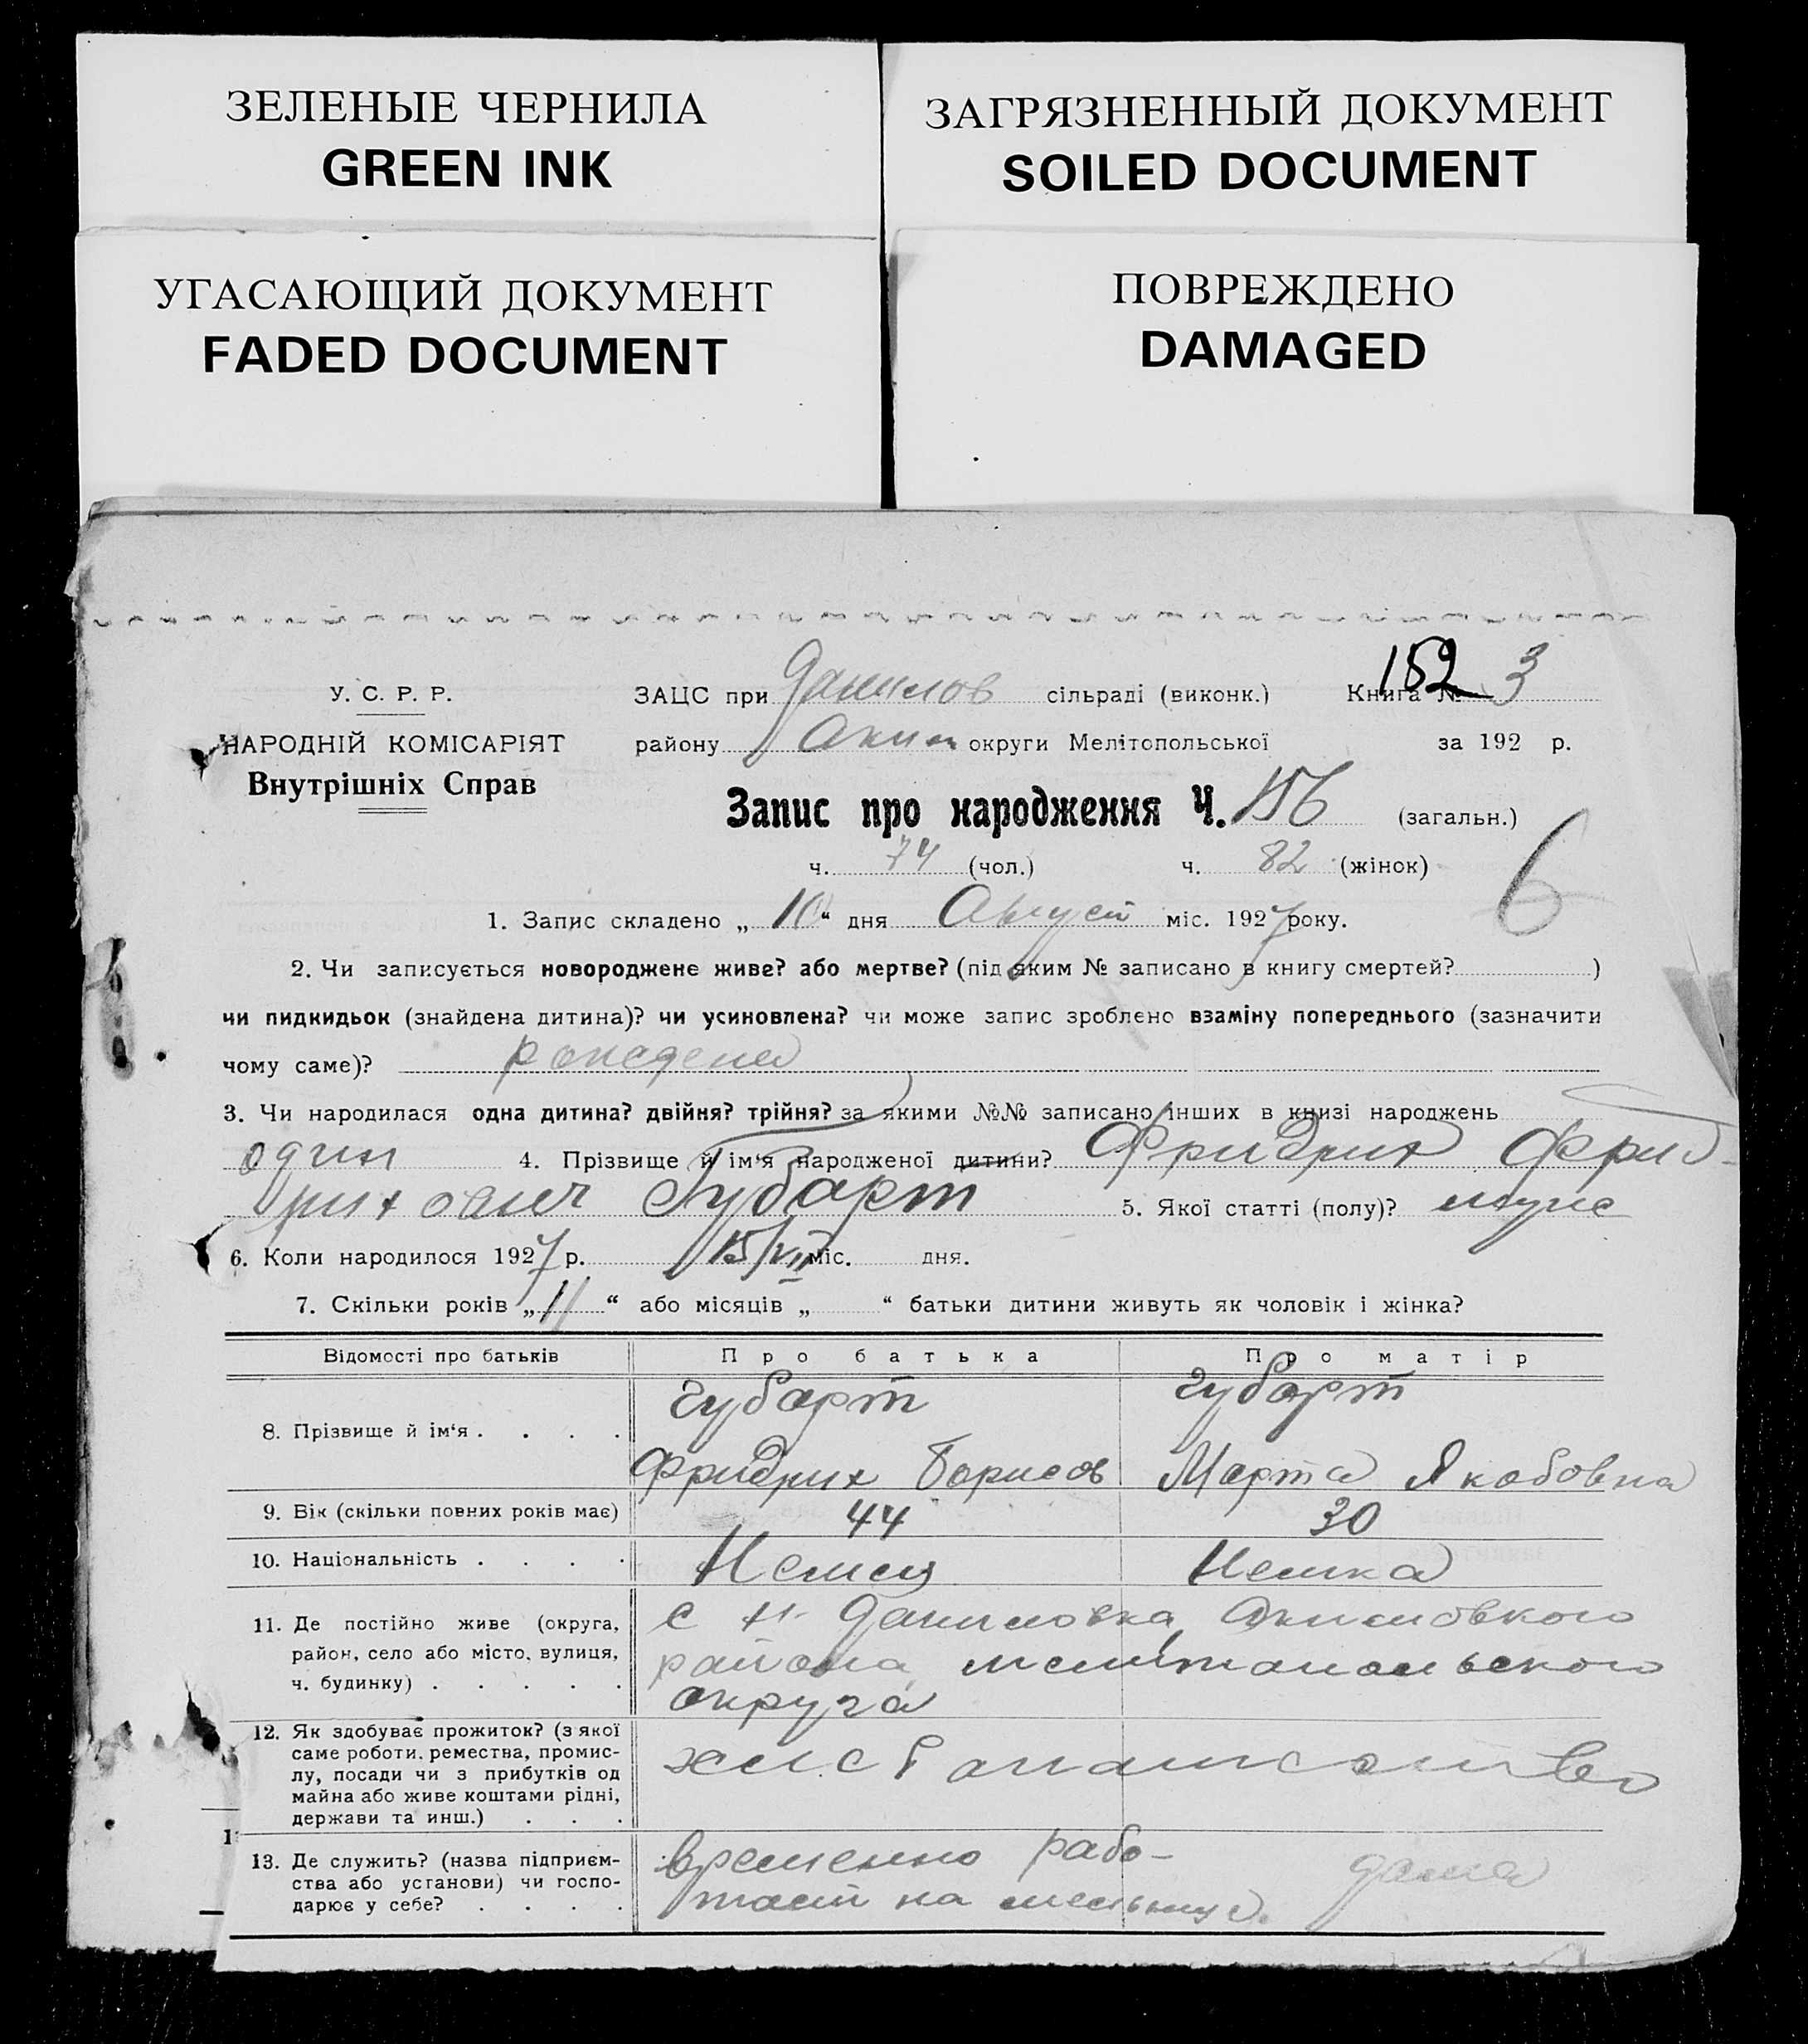 ЗЕЛЕНЫЕ ЧЕРНИЛА
GREEN INK
ЗАГРЯЗНЕННЫЙ ДОКУМЕНТ
SOILED DOCUMENT
УГАСАЮЩИЙ ДОКУМЕНТ
FADED DOCUMENT
ПОВРЕЖДЕНО
DAMAGED
У. С. Р. Р.
НАРОДНІЙ КОМІСАРІЯТ
Внутрішніх Справ
ЗАЦС при Данилов сільраді (виконк.) Книга № 152 3
району Аким округи Мелітопольської за 192 р.
Запис про народження Ч. 156 (загальн.)
ч. 74 (чол.) ч. 82 (жінок)
6
1. Запис складено „ 10 “ дня Август міс. 1927 року.
2. Чи записується новороджене живе? або мертве? (під яким № записано в книгу смертей? )
чи пидкидьок (знайдена дитина)? чи усиновлена? чи може запис зроблено взаміну попереднього (зазначити
чому саме)? рождена
3. Чи народилася одна дитина? двійня? трійня? за якими №№ записано інших в книзі народжень
один 4. Прізвище й ім‘я народженої дитини? Фридрих Фрид-
рихович Губарт 5. Якої статті (полу)? муже
6. Коли народилося 1927 р. 15/VII міс. дня.
7. Скільки років „ 11 “ або місяців „ “ батьки дитини живуть як чоловік і жінка?
Відомості про батьків Про батька Про матір
8. Прізвище й ім‘я . . . . Губарт Губарт
Фридрих Борисов Марта Якобовна
9. Вік (скільки повних років має) 44 30
10. Національність . . . . Немец Немка
11. Де постійно живе (округа, район, село або місто, вулиця, ч. будинку) . . . . .
с Н- Даниловка Акимовкого
района мелитопольского
округа
12. Як здобуває прожиток? (з якої
саме роботи, ремества, промис-
лу, посади чи з прибутків од
майна або живе коштами рідні,
держави та инш.) . . .
13. Де служить? (назва підприєм-
ства або установи) чи госпо-
дарює у себе? . . . .
временно рабо-
тает на мельнице. дома